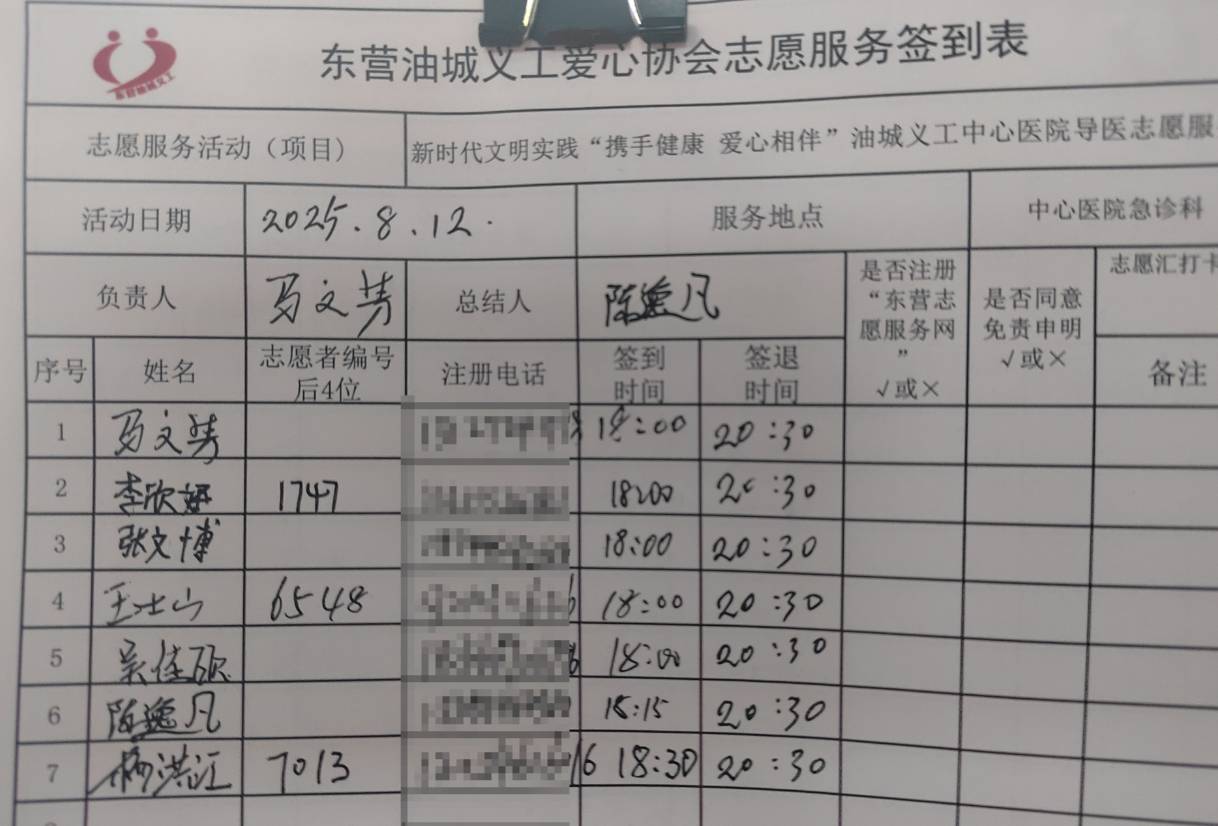 东营油城义工爱心协会志愿服务签到表
东营油城义工
志愿服务活动（项目） 新时代文明实践“携手健康 爱心相伴”油城义工中心医院导医志愿服
活动日期 2025.8.12. 服务地点 中心医院急诊科
负责人 马文芳 总结人 陈逸凡 是否注册“东营志愿服务网” √或× 是否同意免责申明 √或× 志愿汇打卡
序号 姓名 志愿者编号后4位 注册电话 签到时间 签退时间 备注
1 马文芳 18:00 20:30
2 李欣妍 1747 18:00 20:30
3 张文博 18:00 20:30
4 王士山 6548 18:00 20:30
5 吴佳硕 18:00 20:30
6 陈逸凡 18:15 20:30
7 杨洪江 7013 16 18:30 20:30